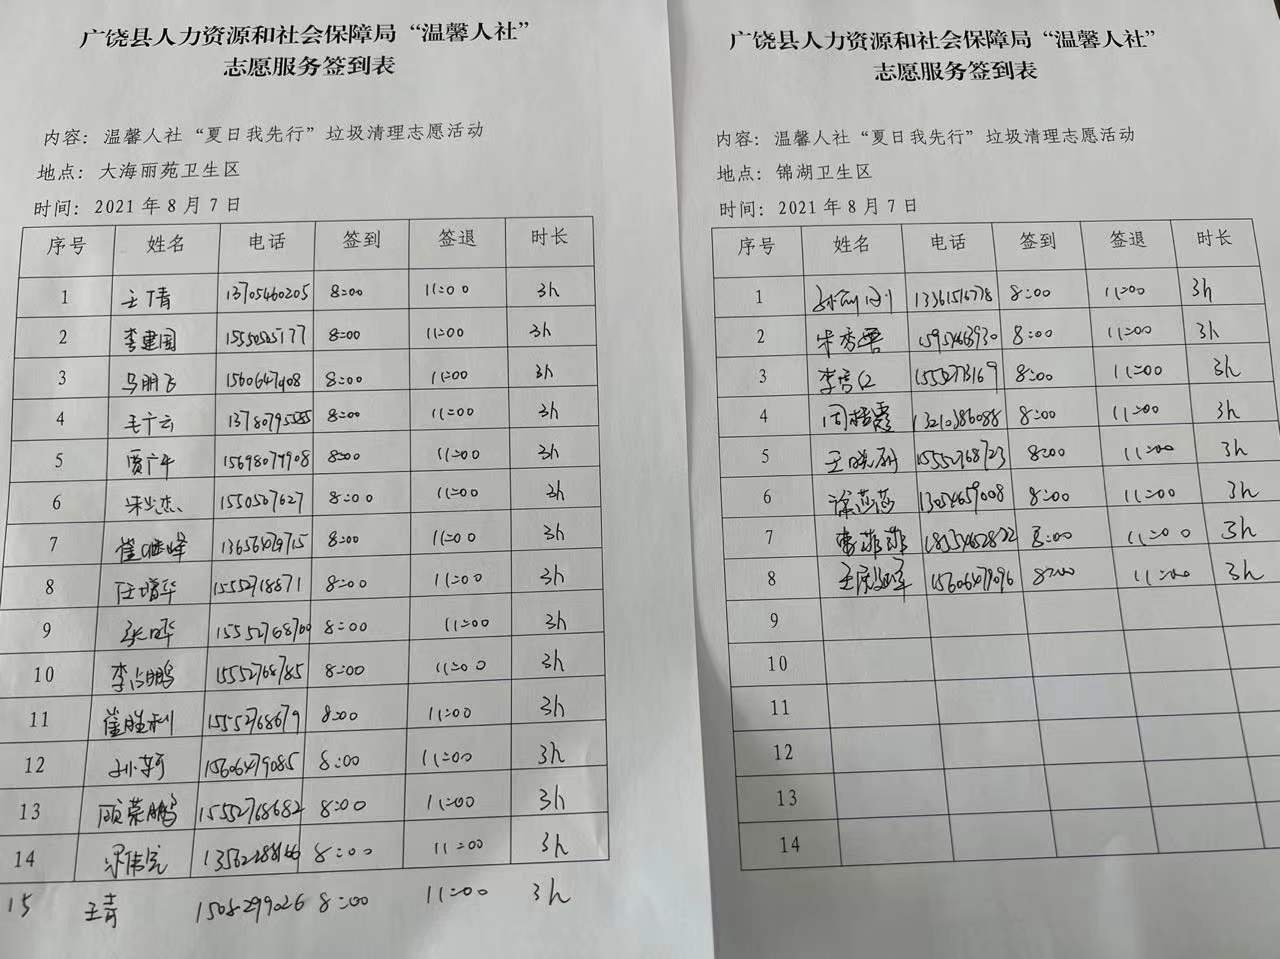 广饶县人力资源和社会保障局“温馨人社”
志愿服务签到表
内容：温馨人社“夏日我先行”垃圾清理志愿活动
地点：大海丽苑卫生区
时间：2021年8月7日
序号 姓名 电话 签到 签退 时长
1 王倩 13705460205 8:00 11:00 3h
2 李建国 8:00 11:00 3h
3 马朋飞 8:00 11:00 3h
4 毛广云 8:00 11:00 3h
5 贾广平 8:00 11:00 3h
6 8:00 11:00 3h
7 8:00 11:00 3h
8 任增华 15552718871 8:00 11:00 3h
9 张晔 8:00 11:00 3h
10 李占鹏 15552768785 8:00 11:00 3h
11 崔胜利 15552768679 8:00 11:00 3h
12 15606479085 8:00 11:00 3h
13 顾荣鹏 15552768682 8:00 11:00 3h
14 8:00 11:00 3h
15 王青 8:00 11:00 3h
广饶县人力资源和社会保障局“温馨人社”
志愿服务签到表
内容：温馨人社“夏日我先行”垃圾清理志愿活动
地点：锦湖卫生区
时间：2021年8月7日
序号 姓名 电话 签到 签退 时长
1 8:00 11:00 3h
2 15954683930 8:00 11:00 3h
3 8:00 11:00 3h
4 13210386088 8:00 11:00 3h
5 15552768723 8:00 11:00 3h
6 徐莎莎 13054659008 8:00 11:00 3h
7 8:00 11:00 3h
8 15606479096 8:00 11:00 3h
9
10
11
12
13
14